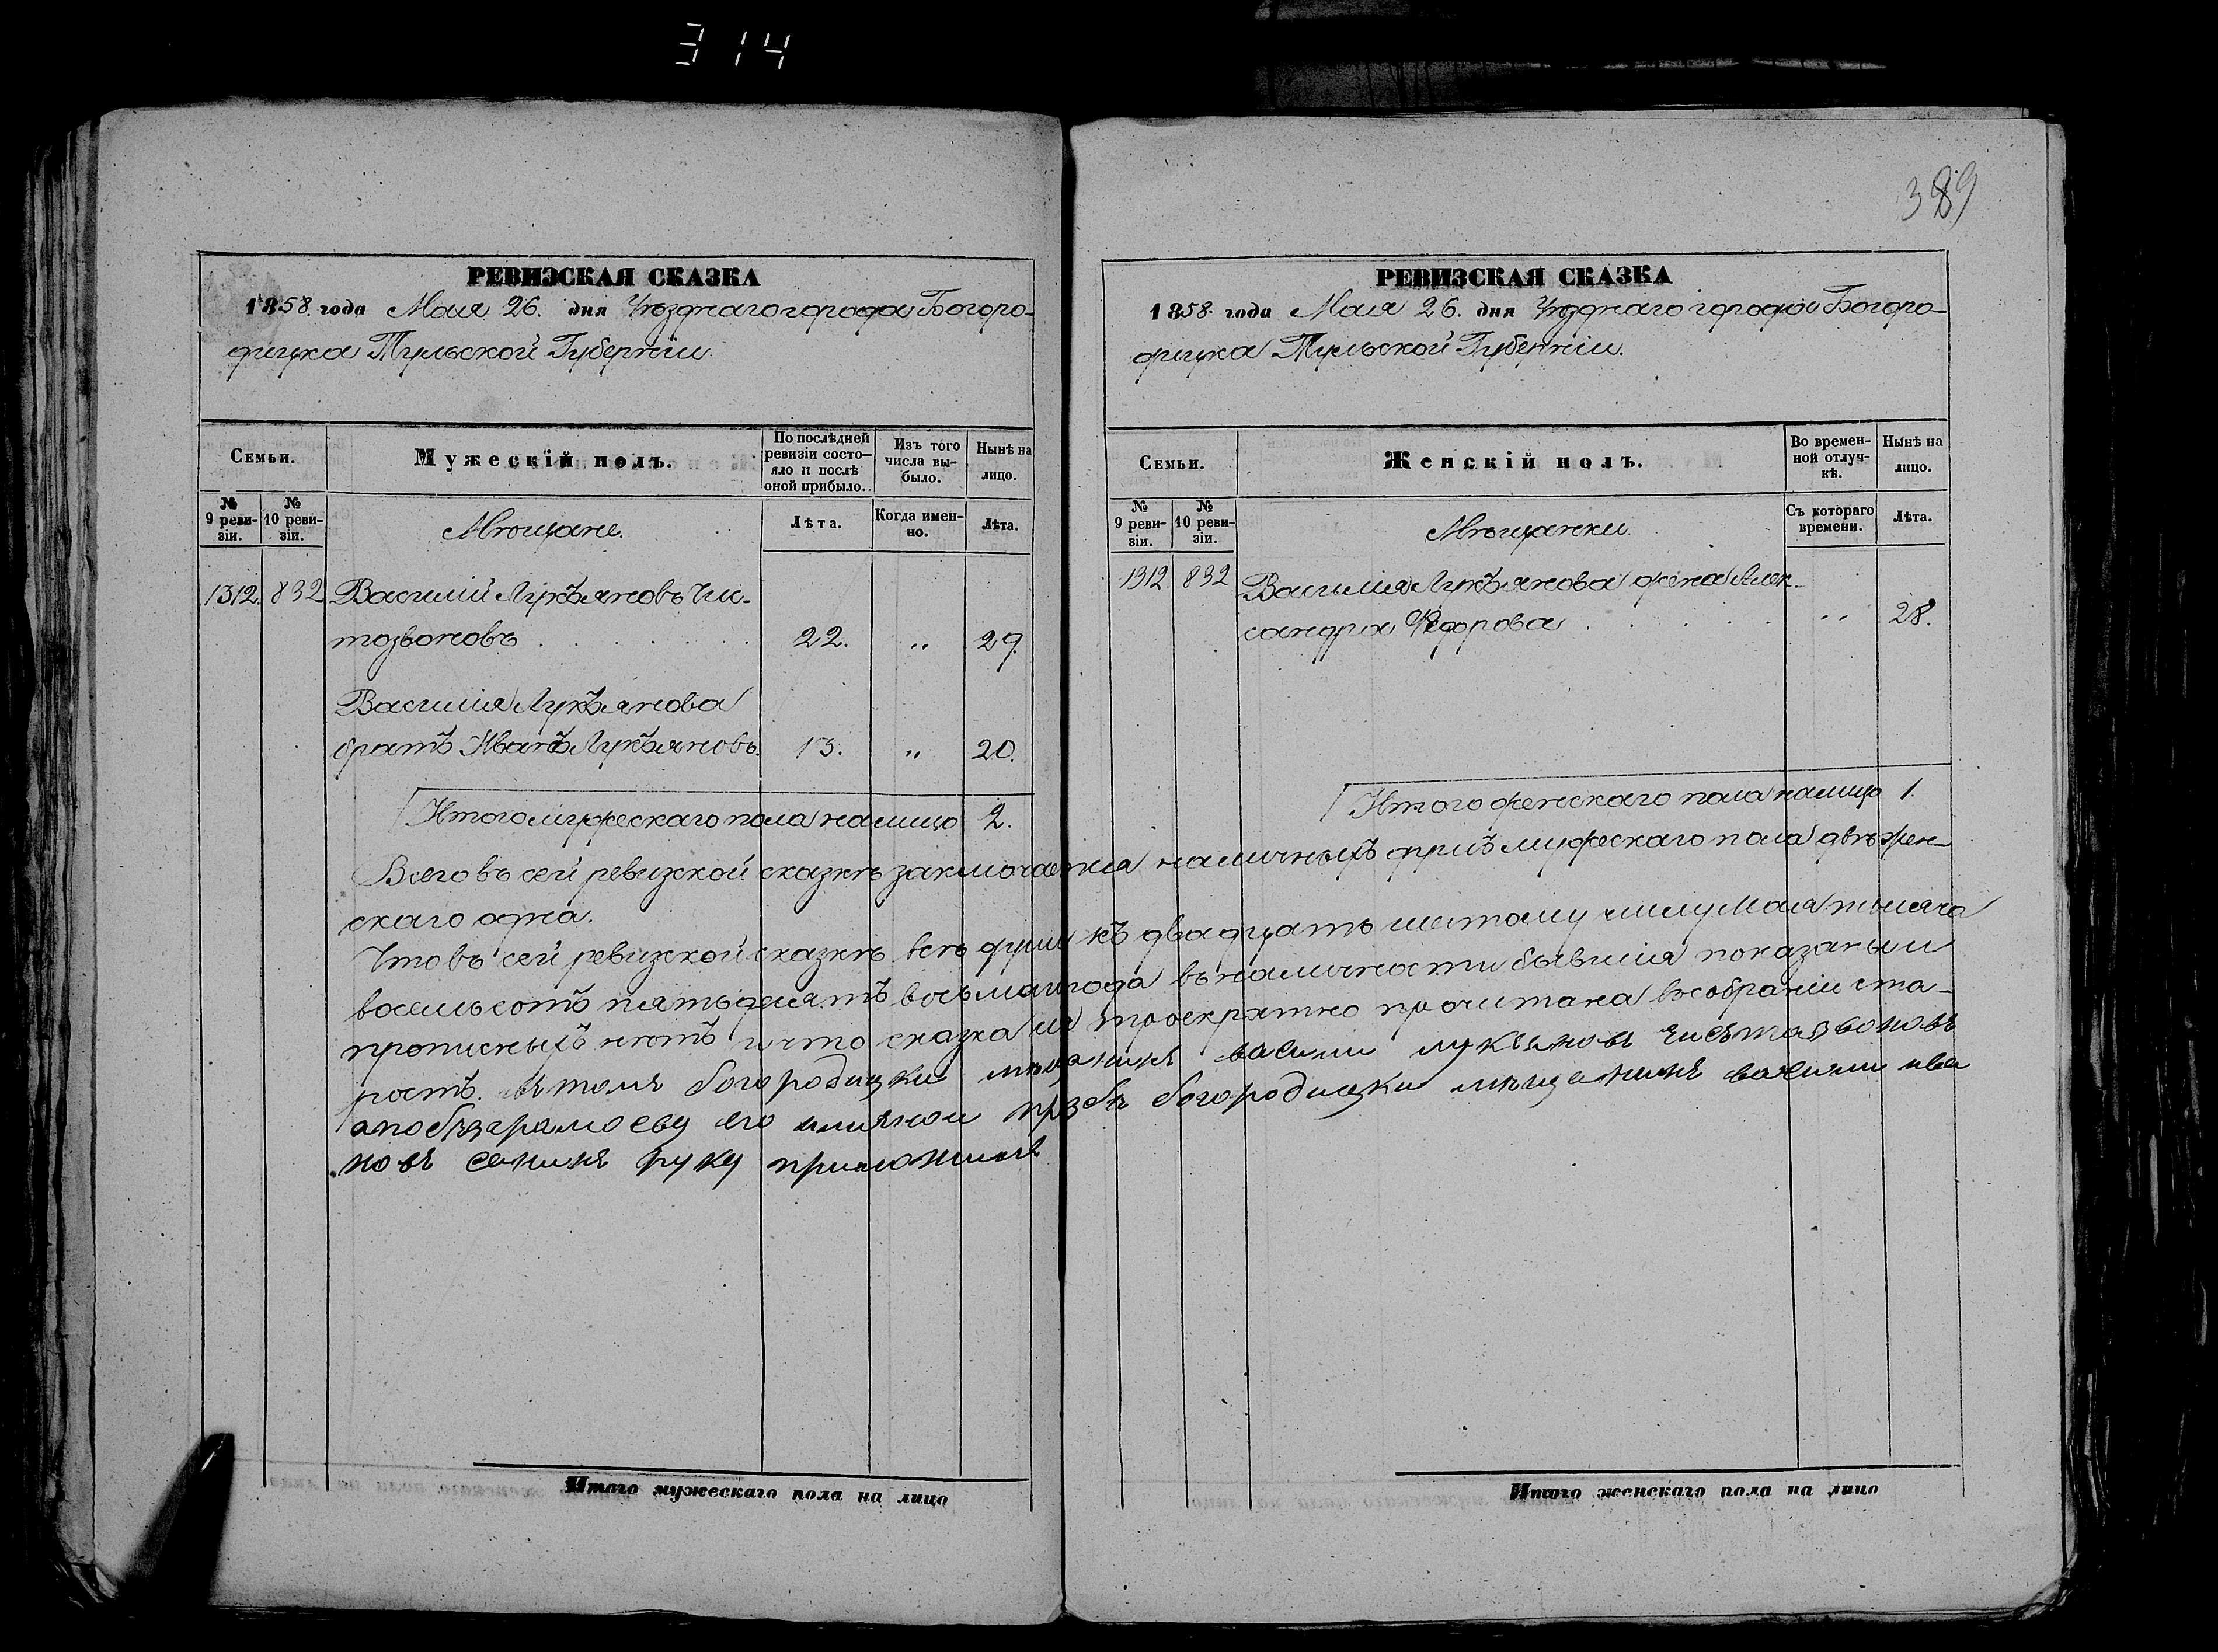 314
389
РЕВИЗСКАЯ СКАЗКА
1858. года Маія 26. дня Уѣзднаго города Богоро-
дицка Тульской Губерніи.
Семьи.
Мужескій полъ.
По послѣдней
ревизіи состо-
яло и послѣ
оной прибыло.
Изъ того
числа вы-
было.
Нынѣ на
лицо.
№
9 реви-
зіи.
№
10 реви-
зіи.
Мѣщане.
Лѣта.
Когда имен-
но.
Лѣта.
1312. 832 Василий Лукъяновъ Чис-
тозвоновъ 22. „ 29.
Василия Лукъянова
братъ Иванъ Лукъяновъ. 13. „ 20.
Итого мужескаго пола налицо 2.
РЕВИЗСКАЯ СКАЗКА
1858. года Маія 26. дня Уѣзднаго города Богоро-
дицка Тульской Губерніи.
Семьи.
Женскій полъ.
Во времен-
ной отлуч-
кѣ.
Нынѣ на
лицо.
№
9 реви-
зіи.
№
10 реви-
зіи.
Мѣщанки.
Съ котораго
времени.
Лѣта.
1312 832 Василия Лукъянова жена Алек-
сандра Федорова „ 28.
Итого женскаго пола налицо 1.
Всего въ сей ревизской сказкѣ заключается наличныхъ душъ мужескаго пола двѣ жен-
скаго одна.
Что въ сей ревизской сказкѣ всѣ души къ двадцать шестому числу Маія тысяча
восемьсотъ пятьдесятъ восьмаго года въ наличности бывшия показаны и
прописныхъ нѣтъ и что сказка сия троекратно прочитана въ собрании ста-
ростъ. въ томъ богородицки мѣщанинъ васили лукьяновъ чистазвоновъ
апобезграмоеву его личнои прозбѣ богородицки мѣщанинъ васили ива
новъ сенинъ руку приложилъ
Итого мужескаго пола на лицо
Итого женскаго пола на лицо